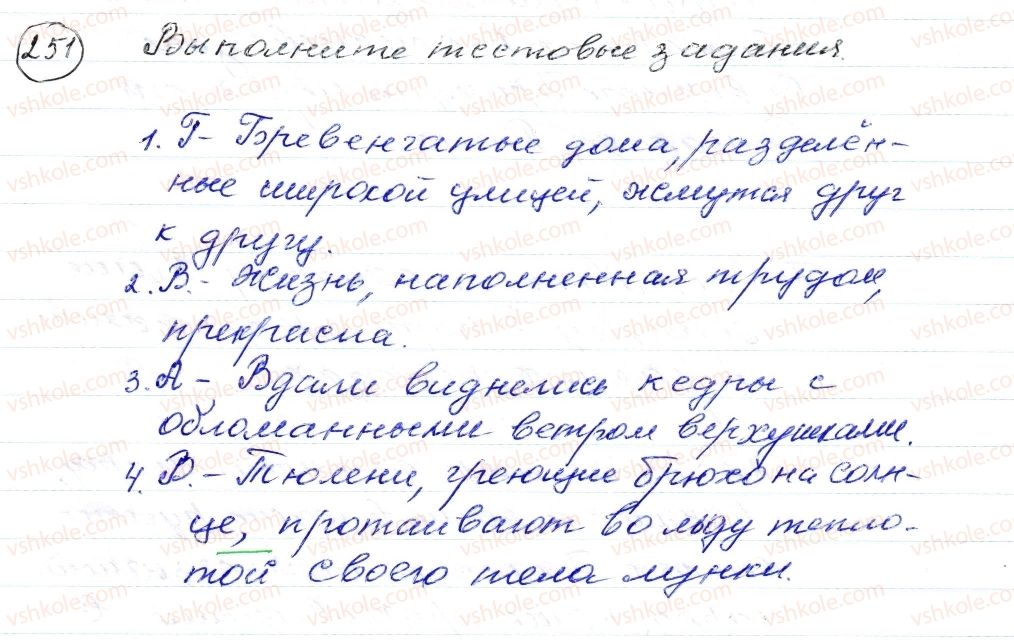 251 Выполните тестовые задания.
1. Г – Бревенчатые дома, разделён-
ные широкой улицей, жмутся друг
к другу.
2. В. – Жизнь, наполненная трудом,
прекрасна.
3. А – Вдали виднелись кедры с
обломанными ветром верхушками.
4. В. – Тюлени, греющие брюхо на солн-
це, протаивают во льду тепло-
той своего тела лунки.